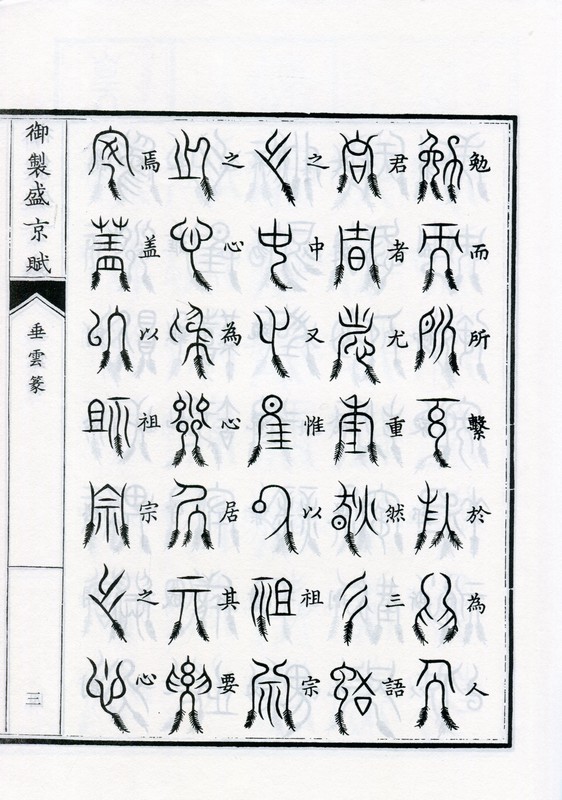 勉而所繫於為人
君者尤重然三語
之中又惟以祖宗
之心為心居其要
焉盖以祖宗之心
御製盛京賦
垂雲篆
三